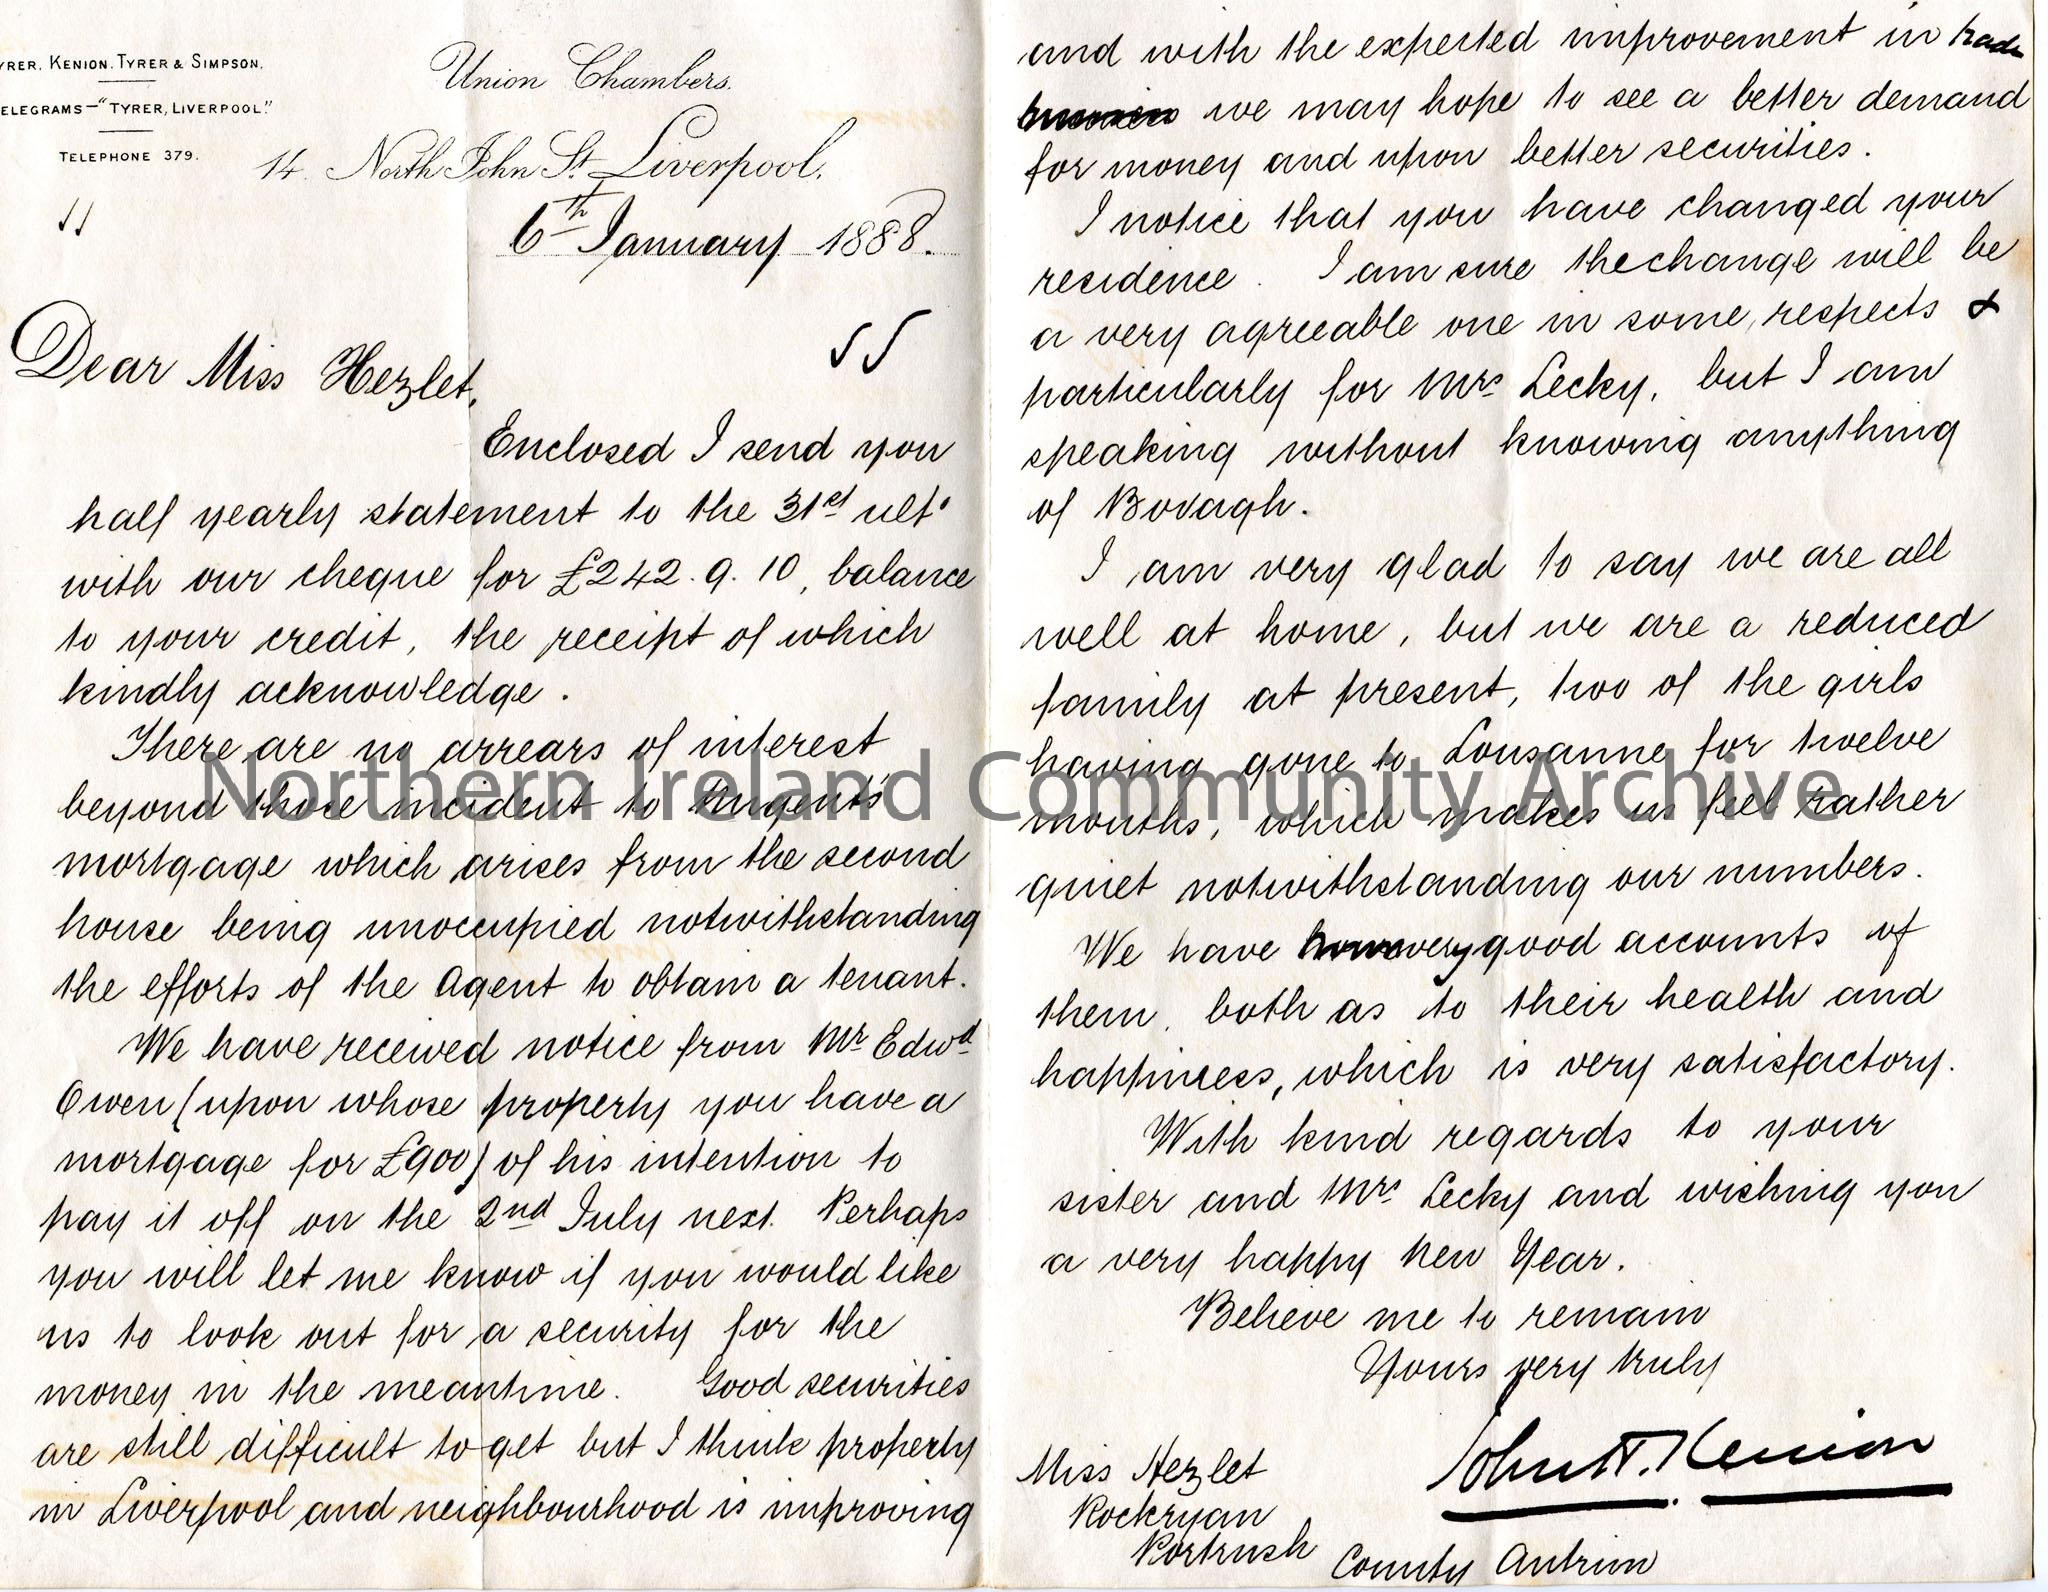 YRER, KENION, TYRER & SIMPSON.
ELEGRAMS—"TYRER, LIVERPOOL."
TELEPHONE 379.
Union Chambers.
14. North John St. Liverpool.
6th January 1888.
Dear Miss Hezlet,
Enclosed I send you
half yearly statement to the 31st ulto
with our cheque for £242.9.10, balance
to your credit, the receipt of which
kindly acknowledge.
There are no arrears of interest
beyond those incident to Nugent's
mortgage which arises from the second
house being unoccupied notwithstanding
the efforts of the Agent to obtain a tenant.
We have received notice from Mr Edwd
Owen (upon whose property you have a
mortgage for £900) of his intention to
pay it off on the 2nd July next. Perhaps
you will let me know if you would like
us to look out for a security for the
money in the meantime. Good securities
are still difficult to get but I think property
in Liverpool and neighbourhood is improving
and with the expected improvement in trade
we may hope to see a better demand
for money and upon better securities.
I notice that you have changed your
residence. I am sure the change will be
a very agreeable one in some respects &
particularly for Mrs Lecky, but I am
speaking without knowing anything
of Bovagh.
I am very glad to say we are all
well at home, but we are a reduced
family at present, two of the girls
having gone to Lousanne for twelve
months, which makes us feel rather
quiet notwithstanding our numbers.
We have very good accounts of
them, both as to their health and
happiness, which is very satisfactory.
With kind regards to your
sister and Mrs Lecky and wishing you
a very happy New Year.
Believe me to remain
Yours very truly
John H. Kenion
Miss Hezlet
Rockryan
Portrush
County Antrim
Northern Ireland Community Archive